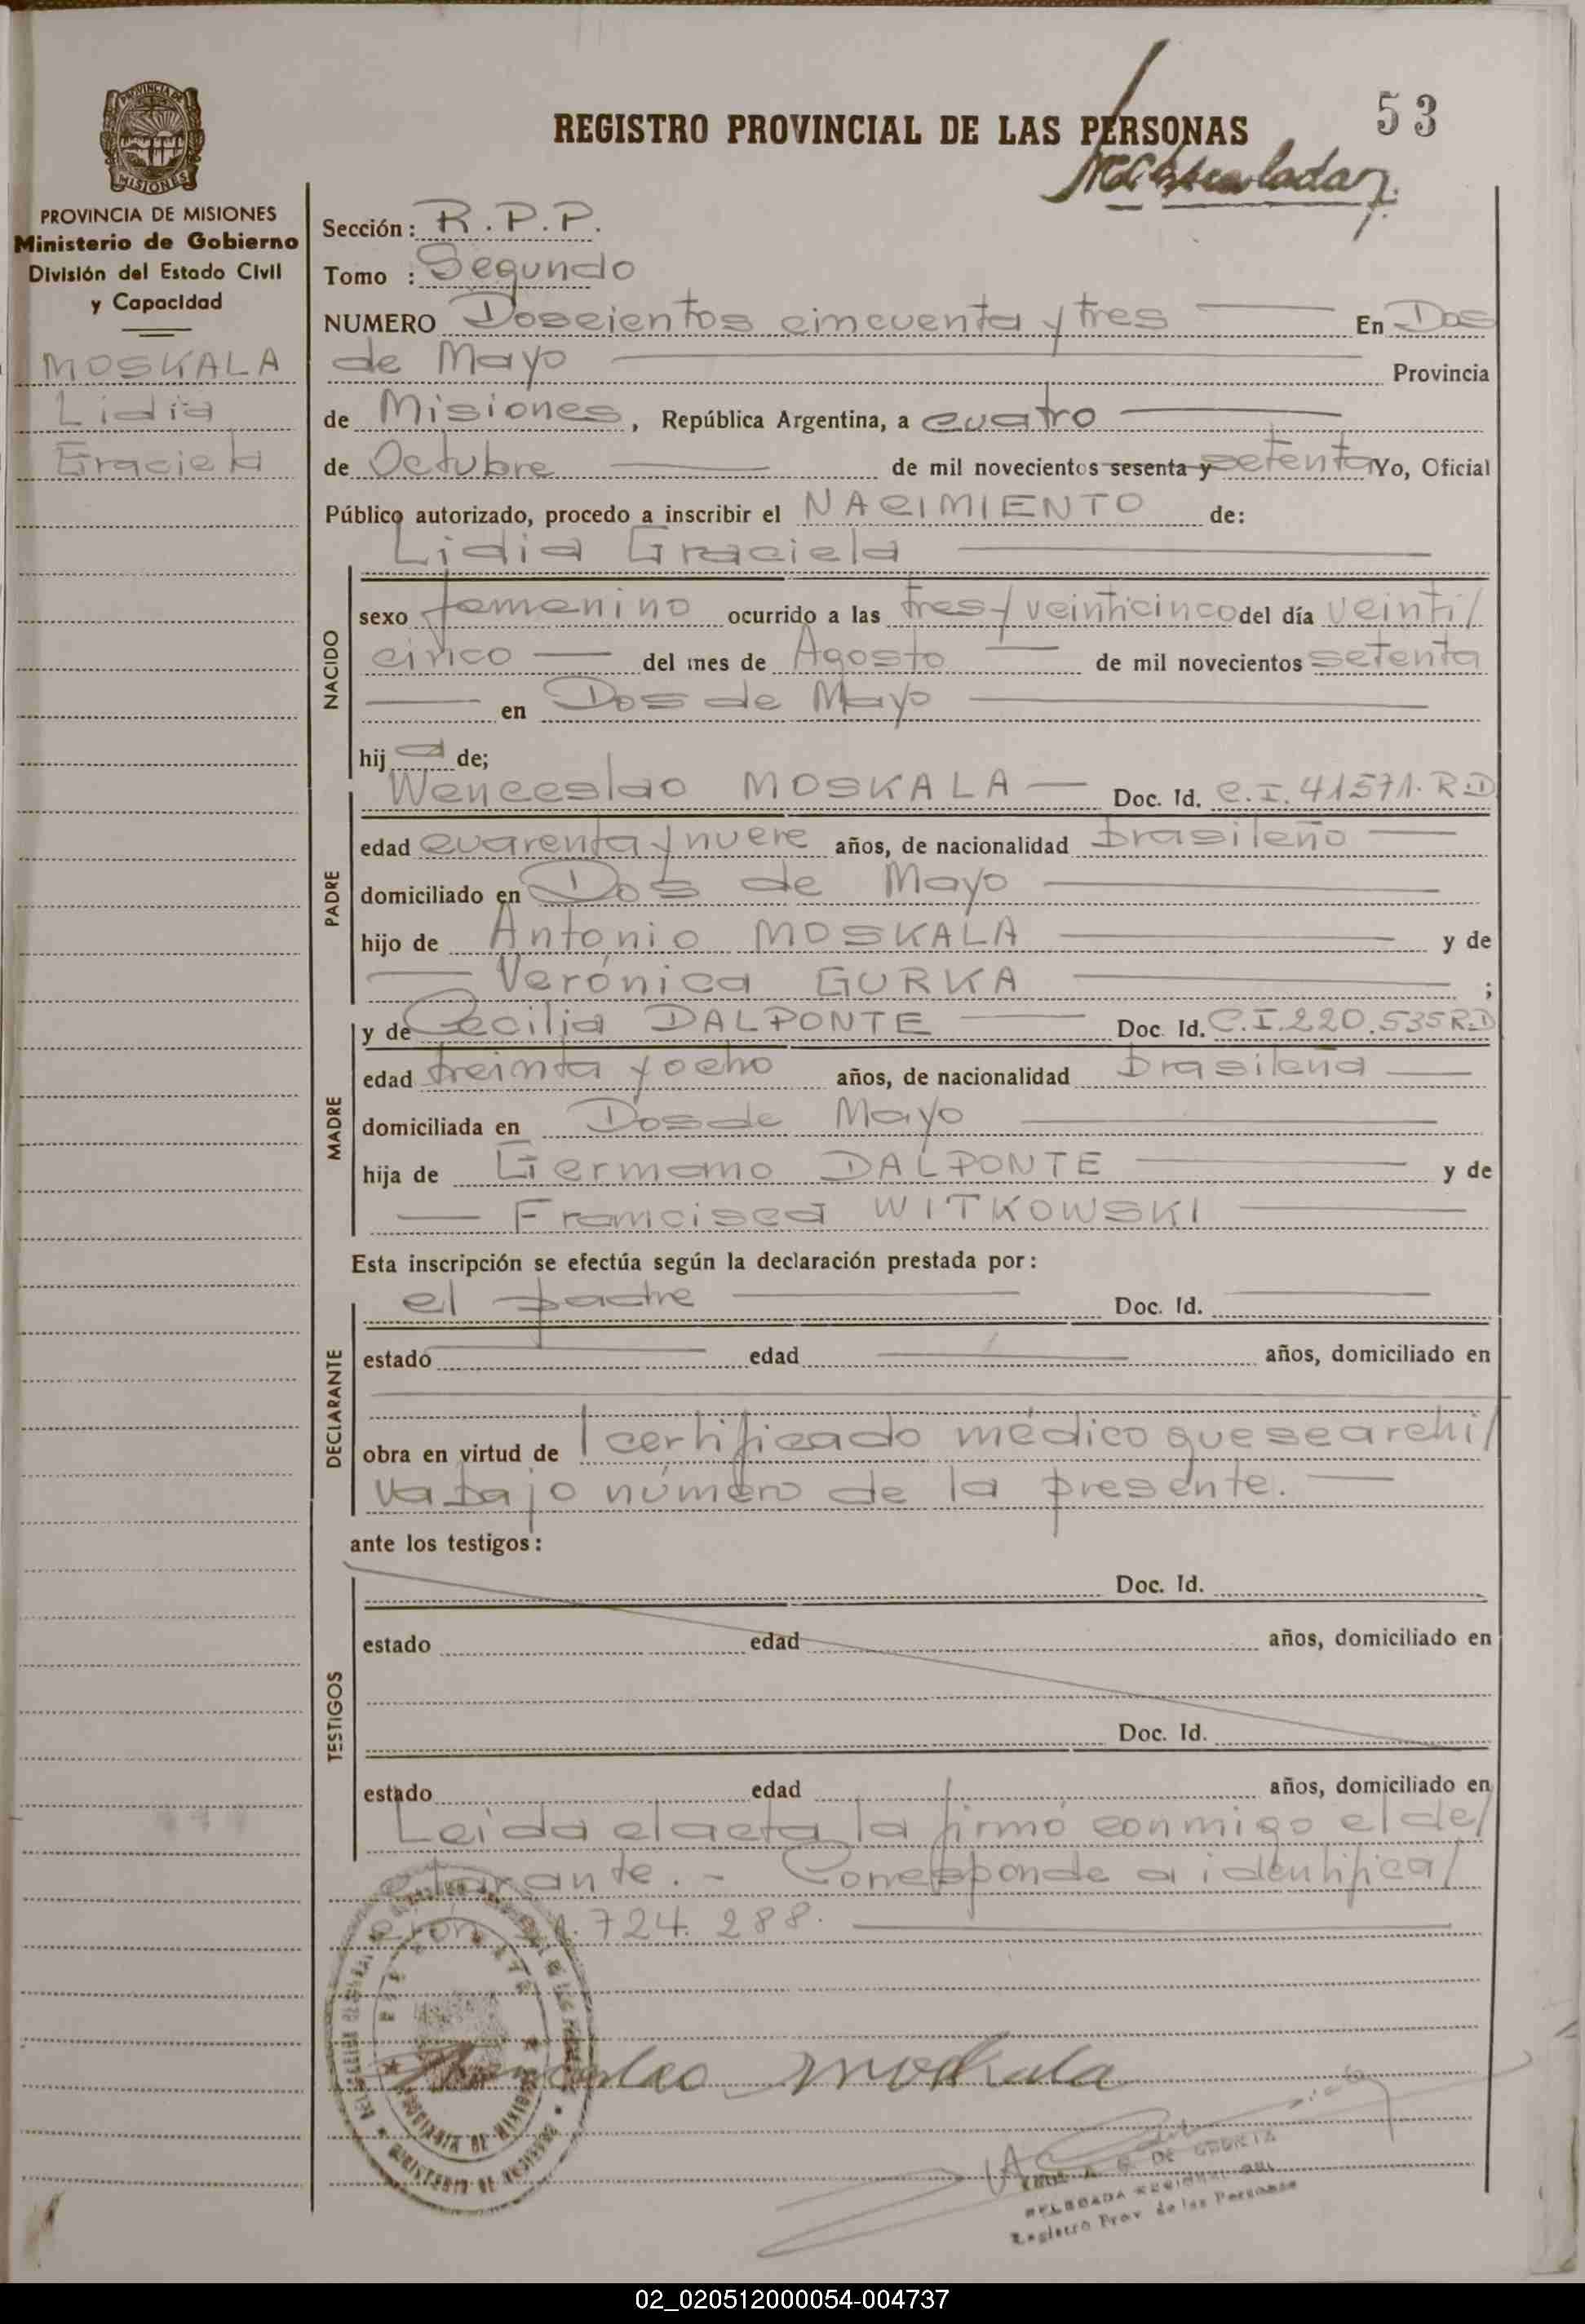 53
REGISTRO PROVINCIAL DE LAS PERSONAS
MISIONES
PROVINCIA DE MISIONES
Ministerio de Gobierno
División del Estado Civil
y Capacidad
MOSKALA
Lidia
Graciela
Sección: R.P.P.
Tomo : Segundo
NUMERO Doscientos cincuenta y tres En Dos
de Mayo Provincia
de Misiones, República Argentina, a cuatro
de Octubre de mil novecientos sesenta y setenta Yo, Oficial
Público autorizado, procedo a inscribir el NACIMIENTO de:
Lidia Graciela
NACIDO
sexo femenino ocurrido a las tres y veinticinco del día veinti/
cinco del mes de Agosto de mil novecientos setenta
en Dos de Mayo
hij a de;
PADRE
Wenceslao MOSKALA Doc. Id. C.I. 41571. R.D
edad cuarenta y nueve años, de nacionalidad brasileño
domiciliado en Dos de Mayo
hijo de Antonio MOSKALA y de
Verónica GURKA ;
MADRE
y de Cecilia DALPONTE Doc. Id. C.I. 220.535 R.D
edad treinta y ocho años, de nacionalidad brasileña
domiciliada en Dos de Mayo
hija de Germano DALPONTE y de
Francisca WITKOWSKI
Esta inscripción se efectúa según la declaración prestada por:
DECLARANTE
el padre Doc. Id.
estado edad años, domiciliado en
obra en virtud de certificado médico que se archi/
va bajo número de la presente.
ante los testigos:
TESTIGOS
Doc. Id.
estado edad años, domiciliado en
Doc. Id.
estado edad años, domiciliado en
Leida el acta la firmó conmigo el de/
clarante. - Corresponde a identifica/
ción 724.288.
Wenceslao Moskala
DE
DELEGADA
Registro Prov. de las Personas
02_020512000054-004737